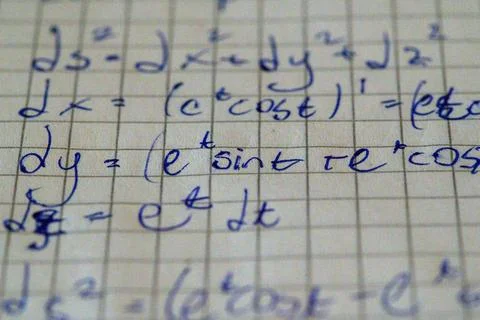 ds² = dx² + dy² + dz²
dx = (e^t cost)' = (e^t c
dy = (e^t sint + e^t cos
dz = e^t dt
ds² = (e^t cost - e^t